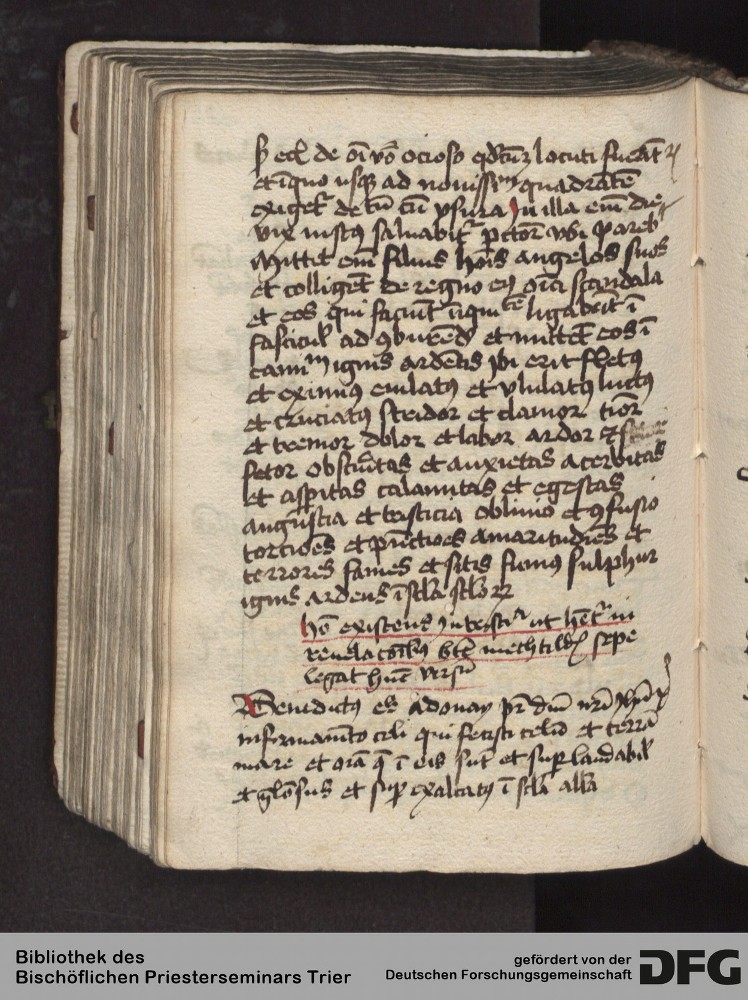 sed de oi vo ocioso qdcuz locuti fuerat
et iquo usq ad nouissm quadrate
exiget de tu cu vsura In illa eni die
vix iustus saluabit pctor vbi pareb
Mittet eni filius hois angelos suos
et colliget de regno eius oia scandala
et eos qui faciut iiquitate ligabut i
fascicul ad conburend et mittet eos i
camim ignis ardetis ibi erit fletus
et eximius eiulatus et vlulatus luctus
et cruciatus stridor et clamor tior
et tremor dolor et labor ardor et
fetor obscuritas et anxietas acerbitas
et aspitas calamitas et egestas
angustia et tristicia obliuio et confusio
tortioes et puctioes amaritudies et
terrores fames et sitis fumus sulphur
ignis ardens i scla sclor
ho existens in tristitia ut het in
reuelacoibus bte mechtild sepe
legat huc versu
Benedictus es adonay pr dni nri
in firmameto celi qui fecisti celu et terra
mare et oia q i eis sut et suplaudabil
et glosus et sup exaltatus i scla alla
Bibliothek des
Bischöflichen Priesterseminars Trier
gefördert von der
Deutschen Forschungsgemeinschaft
DFG